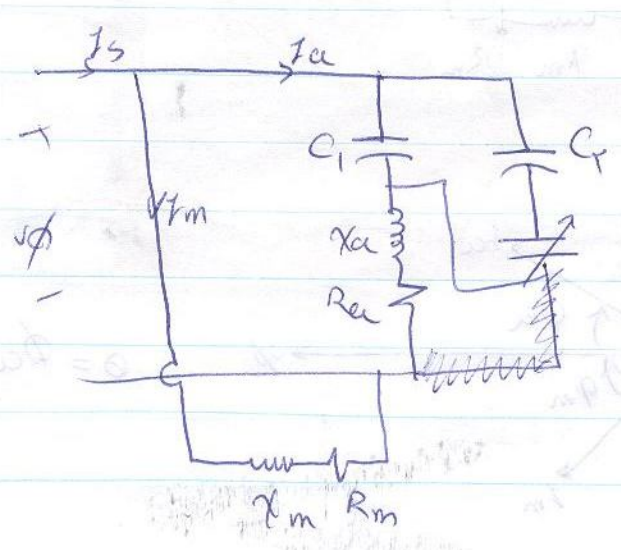 Is
Ia
+
Im
C1
Cr
Vφ
Xa
Ra
-
Xm Rm